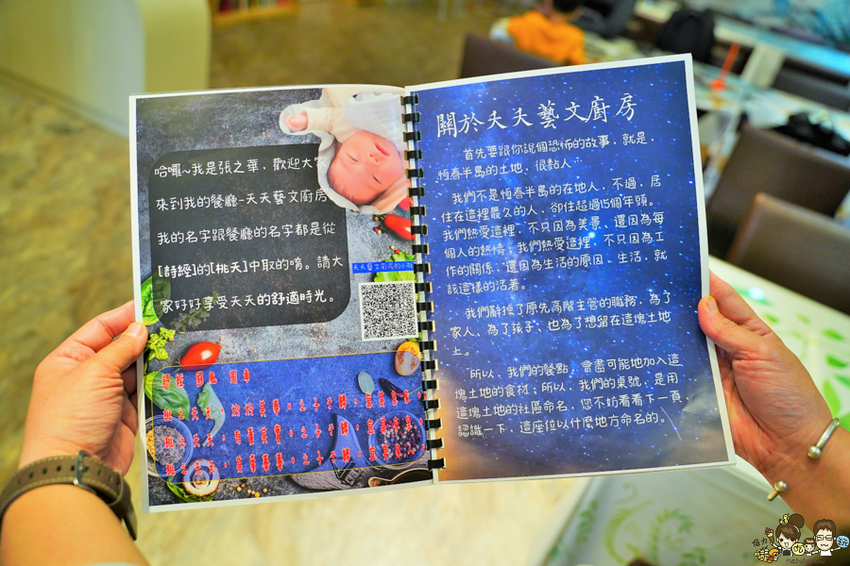 哈囉~我是張之華，歡迎大家
來到我的餐廳-夭夭藝文廚房
我的名字跟餐廳的名字都是從
[詩經]的[桃夭]中取的唷。請大
家好好享受夭夭的舒適時光。
關於夭夭藝文廚房
首先要跟你說個恐怖的故事，就是，
恆春半島的土地，很黏人。
我們不是恆春半島的在地人，不過，居
住在這裡最久的人，卻住超過15個年頭。
我們熱愛這裡，不只因為美景、還因為每
個人的熱情，我們熱愛這裡，不只因為工
作的關係，還因為生活的原因，生活，就
該這樣的活著。
我們辭掉了原先高階主管的職務，為了
家人、為了孩子、也為了想留在這塊土地
上。
所以，我們的餐點，會盡可能地加入這
塊土地的食材；所以，我們的桌號，是用
這塊土地的社區命名，您不妨看看下一頁，
認識一下，這座位以什麼地方命名的。